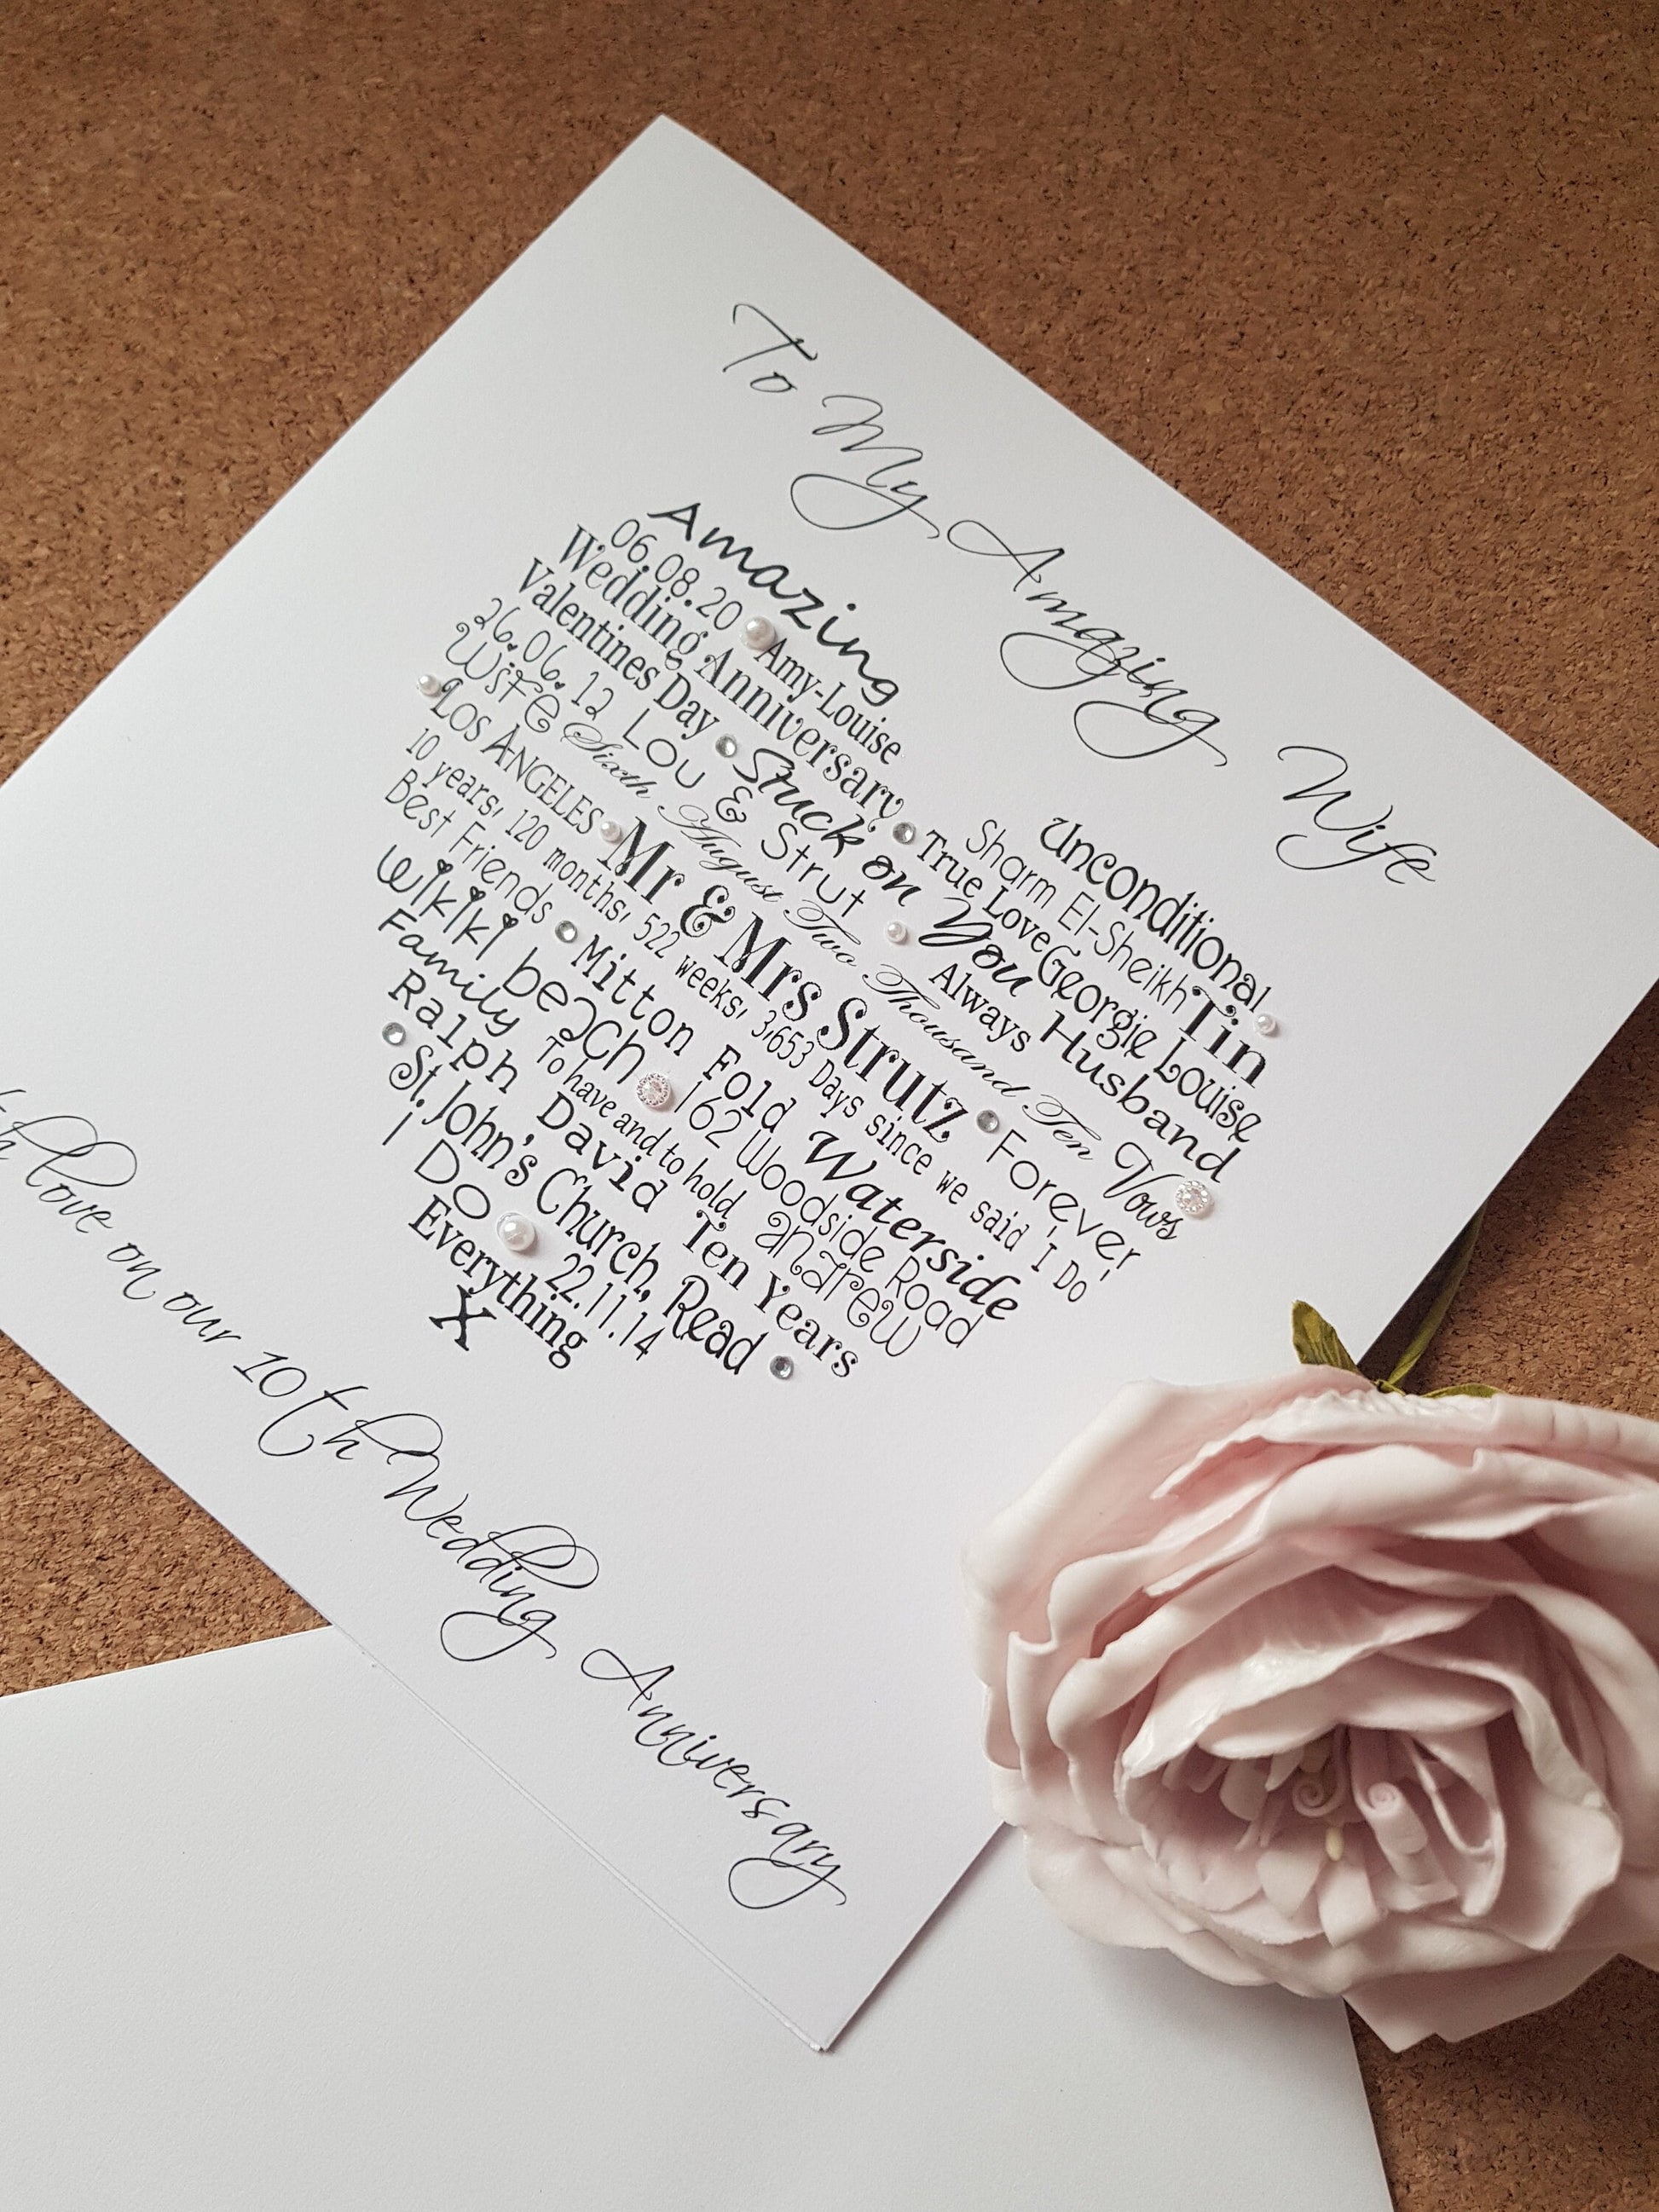 To My Amazing Wife
Amazing Unconditional
06.08.20 Amy-Louise Sharm El-Sheikh Tin
Wedding Anniversary True Love Georgie Louise
Valentines Day Stuck on You Always Husband
26.06.12 Lou & Strut
Wife Sixth August Two Thousand Ten Vows
LOS ANGELES Mr & Mrs Strutz Forever
10 years, 120 months, 522 weeks, 3,653 Days since we said 'I Do'
Best Friends Mitton Fold Waterside
Wikiki beach 162 Woodside Road
Family To have and to hold andrew
Ralph David Ten Years
St. John's Church, Read
I Do 22.11.14
Everything
X
love on our 10th Wedding Anniversary